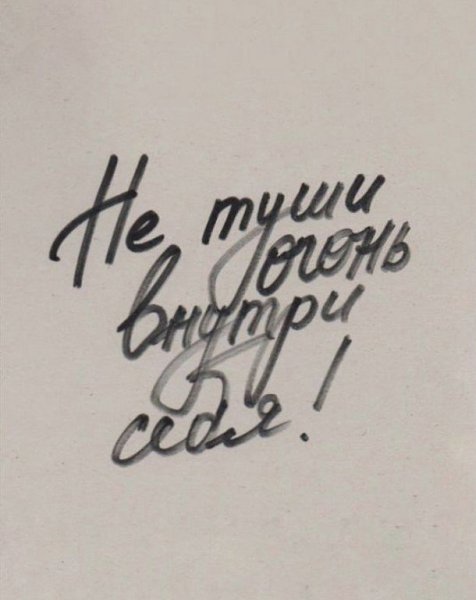 Не туши
огонь
внутри
себя!